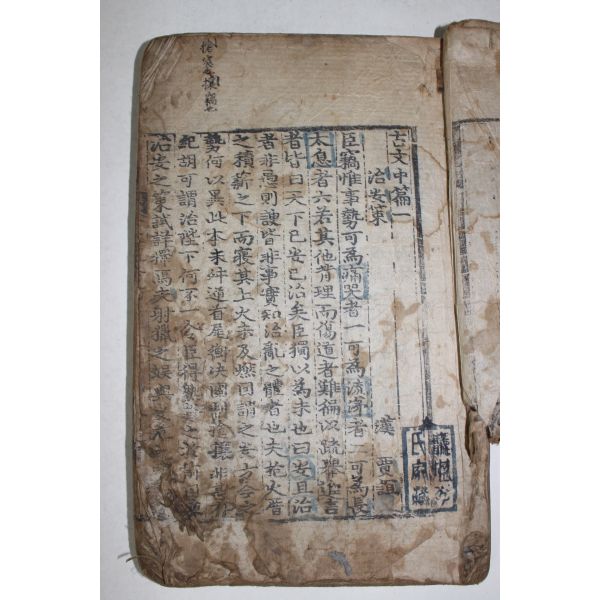 古文中篇一
治安策 漢 賈誼
臣竊惟事勢可為痛哭者一可為流涕者二可為長
太息者六若其他背理而傷道者難徧以疏舉進言
者皆曰天下已安已治矣臣獨以為未也曰安且治
者非愚則諛皆非事實知治亂之體者也夫抱火厝
之積薪之下而寢其上火未及燃因謂之安方今之
勢何以異此本末舛逆首尾衡決國制搶攘非甚有
紀胡可謂治陛下何不一令臣得熟數之
治安之策試詳擇焉夫射獵之娛與安